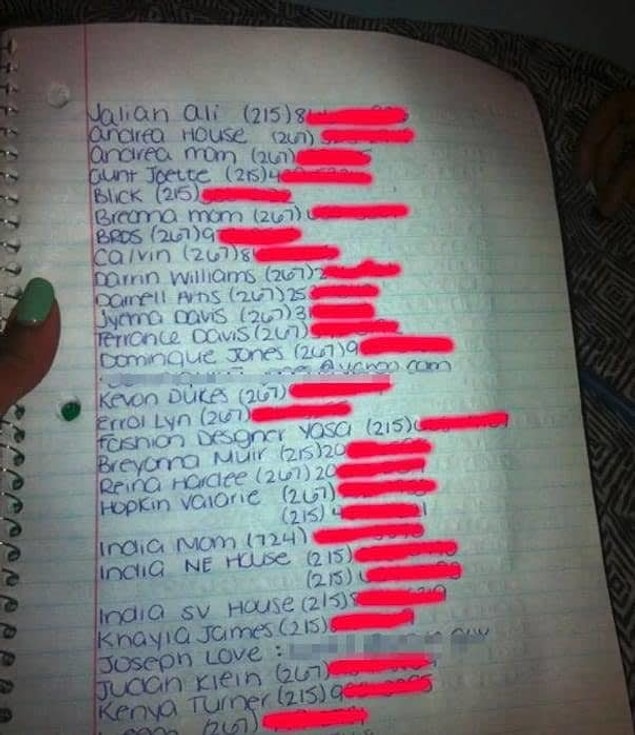 Jalian Ali (215) 8
Andrea House (267)
Andrea mom (267)
Aunt Joette (215) 4
Blick (215)
Breanna mom (267)
BROS (267) 9
Calvin (267) 8
Darrin Williams (267) 2
Darnell Artis (267) 25
Jyema Davis (267) 3
Terrance Davis (267)
Dominique Jones (267) 9
@yahoo.com
Kevon Dukes (267)
Errol Lyn (267)
Fashion Designer Yasa (215)
Breyonna Muir (215) 20
Reina Hardee (267) 20
Hopkin Valorie (267)
(215) 4
India Mom (724)
India NE House (215)
(215)
India SV House (215)
Khayla James (215)
Joseph Love :
Judan Klein (267)
Kenya Turner (215) 9
(267)